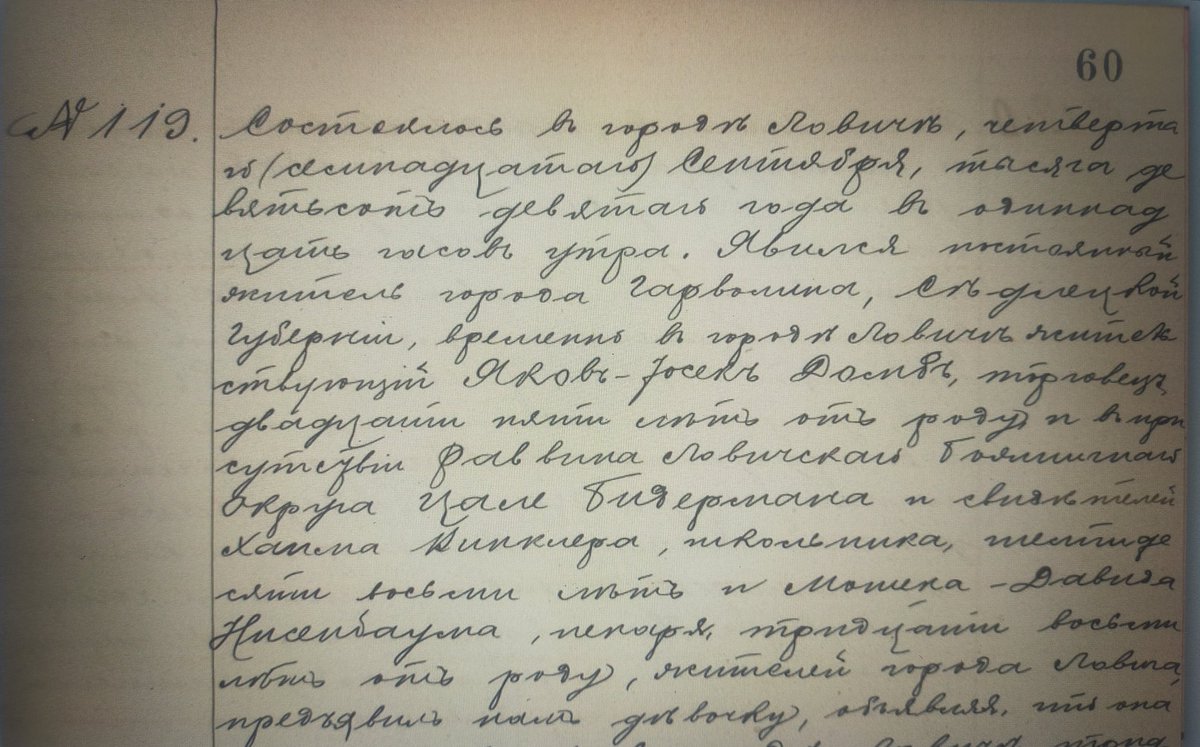 60
№ 119.
Состоялось в городѣ Ловичѣ, четверта
го (семнадцатаго) Сентября, тысяча де
вятьсотъ девятаго года в одиннад
цать часовъ утра. Явился постоянный
житель города Гарволина, Сѣдлецкой
Губерніи, временно в городѣ Ловичѣ жител
ствующій Яковъ-Іосекъ Домбъ, торговецъ
двадцати пяти лѣтъ отъ роду и в при
сутствіи Раввина Ловичскаго Божничнаго
Округа Цале Бидермана и свидѣтелей
Хаима Винклера, школьника, шестиде
сяти восьми лѣтъ и Мошека-Давида
Нисенбаума, пекаря, тридцати восьми
лѣтъ отъ роду, жителей города Ловича,
предъявилъ намъ дѣвочку, объявляя, что она